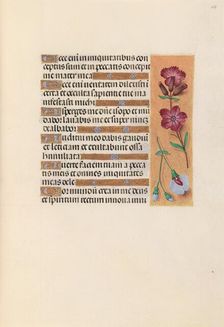 Ecce enim iniquitatibus con
ceptus sum et in peccatis concepit
me mater mea
Ecce enim veritatem dilexisti
incerta et occulta sapientie tue ma
nifestasti michi
Asperges me domine ysopo et mun
dabor lavabis me et super nivem
dealbabor
Auditui meo dabis gaudium
et leticiam et exultabunt ossa
humiliata
Averte faciem tuam a pecca
tis meis et omnes iniquitates
meas dele
Cor mundum crea in me deus
et spiritum rectum innova in vi